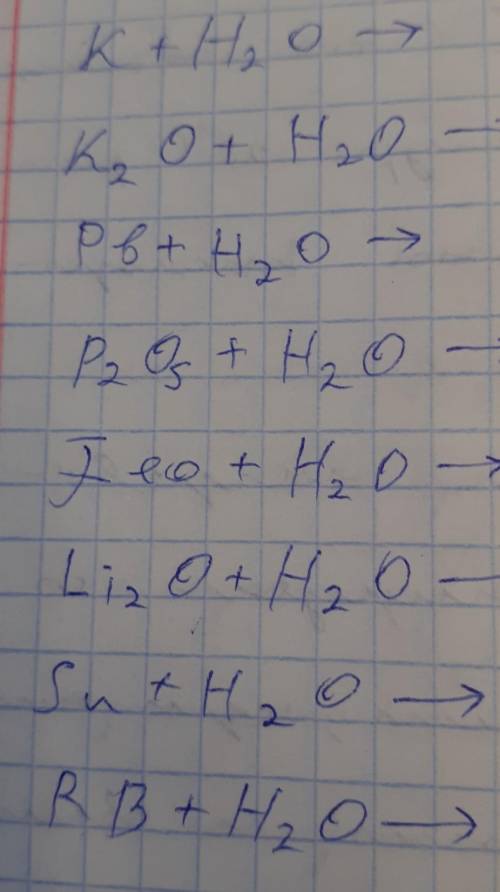 K + H₂O →
K₂O + H₂O —
Pb + H₂O →
P₂O₅ + H₂O —
Feo + H₂O →
Li₂O + H₂O —
Sn + H₂O →
RB + H₂O →